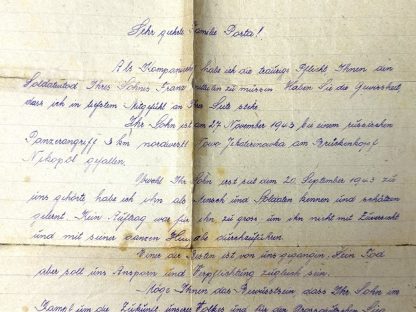 Sehr geehrte Familie Porta!
Als Kompanie habe ich die traurige Pflicht Ihnen den
Soldatentod Ihres Sohnes Franz mitteilen zu müssen. Haben Sie die Gewissheit,
dass ich in tiefstem Mitgefühl an Ihrer Seite stehe.
Ihr Sohn ist am 27. November 1943 bei einem russischen
Panzerangriff 3 km nordwestl. Nowo Jekaterinowka am Brückenkopf
Nikopol gefallen.
Obwohl Ihr Sohn erst seit dem 20. September 1943 zu
uns gehörte, habe ich ihn als Mensch und Soldaten kennen und schätzen
gelernt. Kein Auftrag war für ihn zu gross um ihn nicht mit Zuversicht
und mit seiner ganzen Hingabe durchzuführen.
Einer der Besten ist von uns gegangen. Sein Tod
aber soll uns Ansporn und Verpflichtung zugleich sein.
Möge Ihnen das Bewusstsein dass Ihr Sohn im
Kampf um die Zukunft unseres Volkes und für den Grossdeutschen Sieg